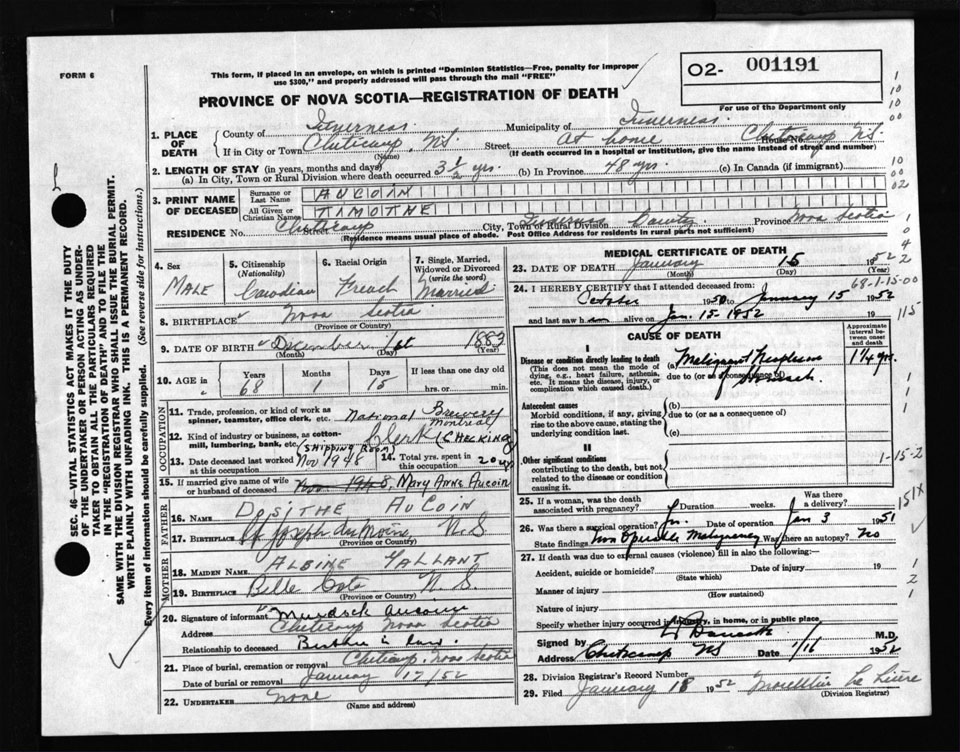 FORM 6
This form, if placed in an envelope, on which is printed "Dominion Statistics—Free, penalty for improper
use $300," and properly addressed will pass through the mail "FREE"
O2- 001191
For use of the Department only
PROVINCE OF NOVA SCOTIA—REGISTRATION OF DEATH
1. PLACE OF DEATH
County of Inverness Municipality of Inverness
If in City or Town Cheticamp, N.S. (Name) Street At home House No. Cheticamp N.S.
(If death occurred in a hospital or institution, give the name instead of street and number)
2. LENGTH OF STAY (in years, months and days)
(a) In City, Town or Rural Division where death occurred 3 1/2 yrs. (b) In Province 48 yrs. (c) In Canada (if immigrant)
3. PRINT NAME OF DECEASED
Surname or Last Name AUCOIN
All Given or Christian Names TIMOTHE
RESIDENCE No. Cheticamp Street City, Town or Rural Division Inverness County Province Nova Scotia
(Residence means usual place of abode. Post Office Address for residents in rural parts not sufficient)
4. Sex
MALE
5. Citizenship (Nationality)
Canadian
6. Racial Origin
French
7. Single, Married, Widowed or Divorced (write the word)
Married
8. BIRTHPLACE Nova Scotia
(Province or Country)
9. DATE OF BIRTH December 1st 1883
(Month) (Day) (Year)
10. AGE in Years 68 Months 1 Days 15 If less than one day old
hrs. or min.
OCCUPATION
11. Trade, profession, or kind of work as spinner, teamster, office clerk, etc. National Brewery Montreal
12. Kind of industry or business, as cotton-mill, lumbering, bank, etc. Clerk (CHECKING)
(SHIPPING ROOM)
13. Date deceased last worked at this occupation Nov 1948
14. Total yrs. spent in this occupation 20 yrs
15. If married give name of wife or husband of deceased Nov 1948, Mary Anne Aucoin
FATHER
16. NAME DOSITHE AUCOIN
17. BIRTHPLACE St Joseph du Moine N.S
(Province or Country)
MOTHER
18. MAIDEN NAME ALBINE TALLANT
19. BIRTHPLACE Belle Cote N.S.
(Province or Country)
20. Signature of informant Murdock Aucoin
Address Cheticamp Nova Scotia
Relationship to deceased Brother in law.
21. Place of burial, cremation or removal Cheticamp, Nova Scotia
Date of burial or removal January 17/52
22. UNDERTAKER None
(Name and address)
MEDICAL CERTIFICATE OF DEATH
23. DATE OF DEATH January 15 1952
(Month) (Day) (Year)
68-1-15-00
24. I HEREBY CERTIFY that I attended deceased from:
October 1950 to January 15 1952
and last saw him alive on Jan. 15 - 1952 19
115
CAUSE OF DEATH
Approximate interval between onset and death
I
Disease or condition directly leading to death
(This does not mean the mode of dying, e.g., heart failure, asthenia, etc. It means the disease, injury, or complication which caused death.)
(a) Malignant Neoplasm 1 1/4 yrs.
due to (or as a consequence of)
of Stomach.
Antecedent causes
Morbid conditions, if any, giving rise to the above cause, stating the underlying condition last.
(b)
due to (or as a consequence of)
(c)
II
Other significant conditions
contributing to the death, but not related to the disease or condition causing it.
1-15-2
25. If a woman, was the death associated with pregnancy? Duration weeks. Was there a delivery?
151X
26. Was there a surgical operation? Date of operation Jan 3 1951
State findings Non Operable Malignancy Was there an autopsy? No
27. If death was due to external causes (violence) fill in also the following:—
Accident, suicide or homicide? Date of injury 19
(State which)
Manner of injury
(How sustained)
Nature of injury
Specify whether injury occurred in industry, in home, or in public place
Signed by M.D.
Address Cheticamp NS Date 1/16 1952
28. Division Registrar's Record Number
29. Filed January 18 1952
(Division Registrar)
SEC. 46—VITAL STATISTICS ACT MAKES IT THE DUTY
OF THE UNDERTAKER OR PERSON ACTING AS UNDER-
TAKER TO OBTAIN ALL THE PARTICULARS REQUIRED
IN THE "REGISTRATION OF DEATH" AND TO FILE THE
SAME WITH THE DIVISION REGISTRAR WHO SHALL ISSUE THE BURIAL PERMIT.
WRITE PLAINLY WITH UNFADING INK. THIS IS A PERMANENT RECORD.
Every item of information should be carefully supplied. (See reverse side for instructions.)